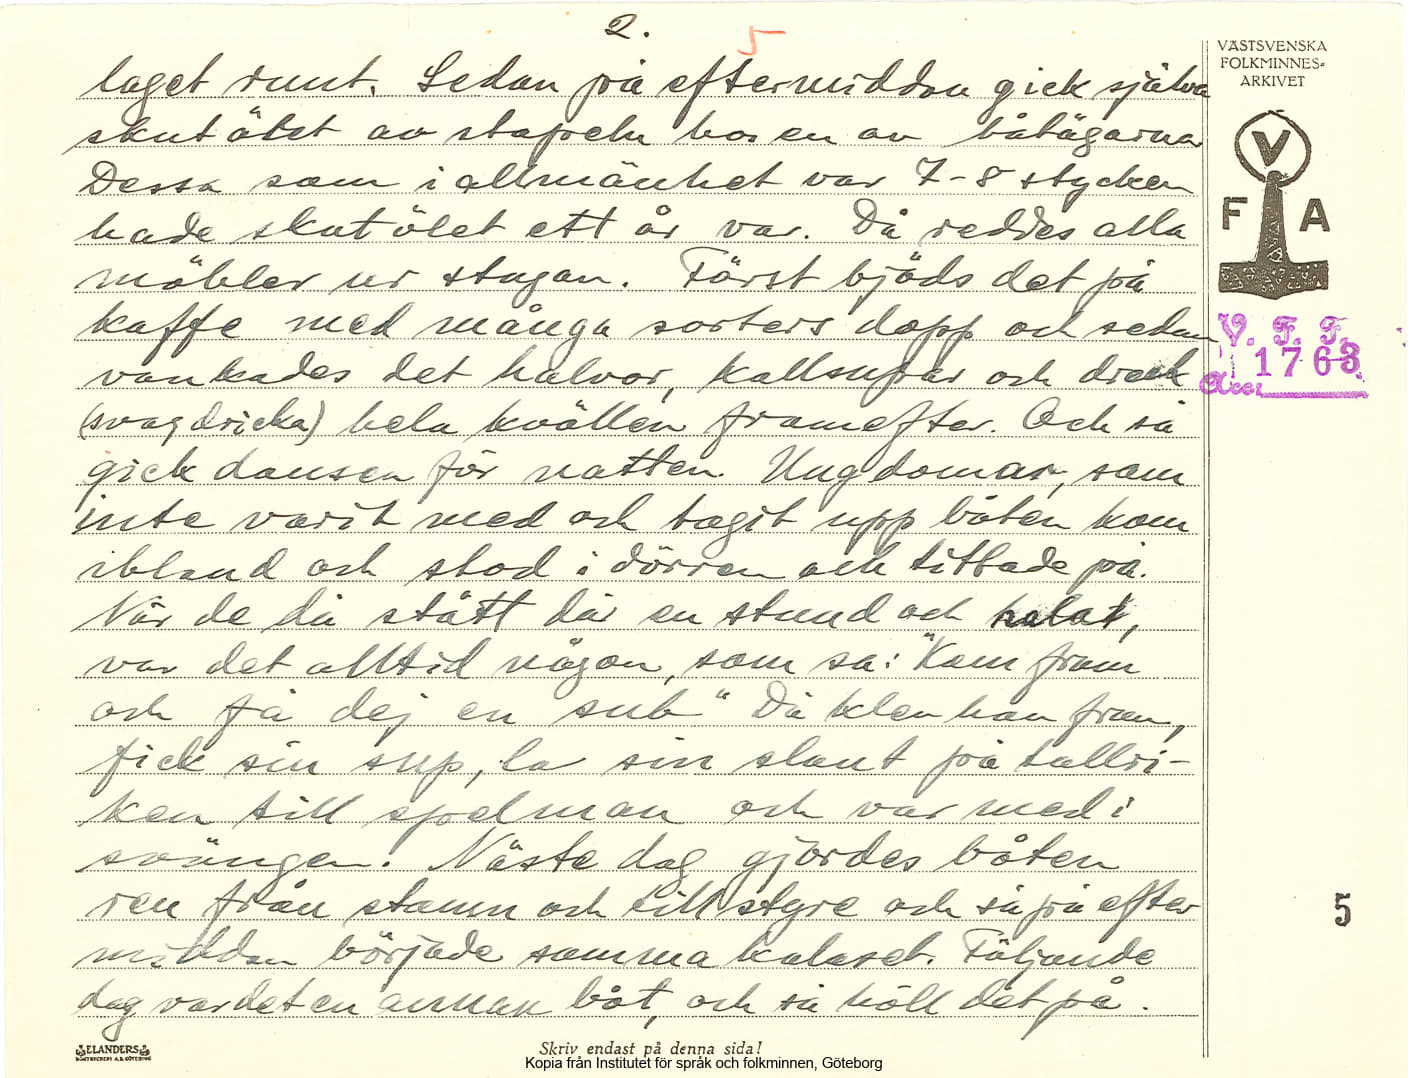 2.
5
VÄSTSVENSKA
FOLKMINNES-
ARKIVET
V
F A
V. F. F.
1763
Acc:
laget runt. Sedan på eftermiddan gick själva
skutölet av stapeln hos en av båtägarna
Dessa som i allmänhet var 7-8 stycken
hade skutölet ett år var. Då reddes alla
möbler ur stugan. Först bjöds det på
kaffe med många sorters dopp och sedan
vankades det halvor, kallsupar och drick
(svagdricka) hela kvällen framefter. Och så
gick dansen för natten. Ungdomar, som
inte varit med och tagit upp båten kom
ibland och stod i dörren och tittade på.
När de då stått där en stund och
var det alltid någon, som sa: "Kom fram
och få dej en sub" Då klev han fram,
fick sin sup, la sin slant på tallri-
ken till spelman och var med i
svängen. Näste dag gjordes båten
ren från stamn och till styre och så på efter
middan började samma kalaset. Följande
dag var det en annan båt, och så höll det på.
5
ELANDERS
BOKTRYCKERI A.B. GÖTEBORG
Skriv endast på denna sida!
Kopia från Institutet för språk och folkminnen, Göteborg